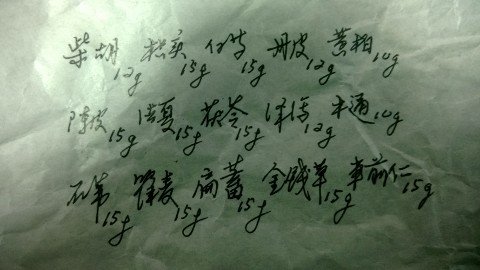 柴胡12g 枳实15g 白芍15g 丹皮12g 黄柏10g
陈皮15g 法夏15g 茯苓15g 泽泻12g 木通10g
石韦15g 瞿麦15g 扁蓄15g 金钱草15g 车前仁15g